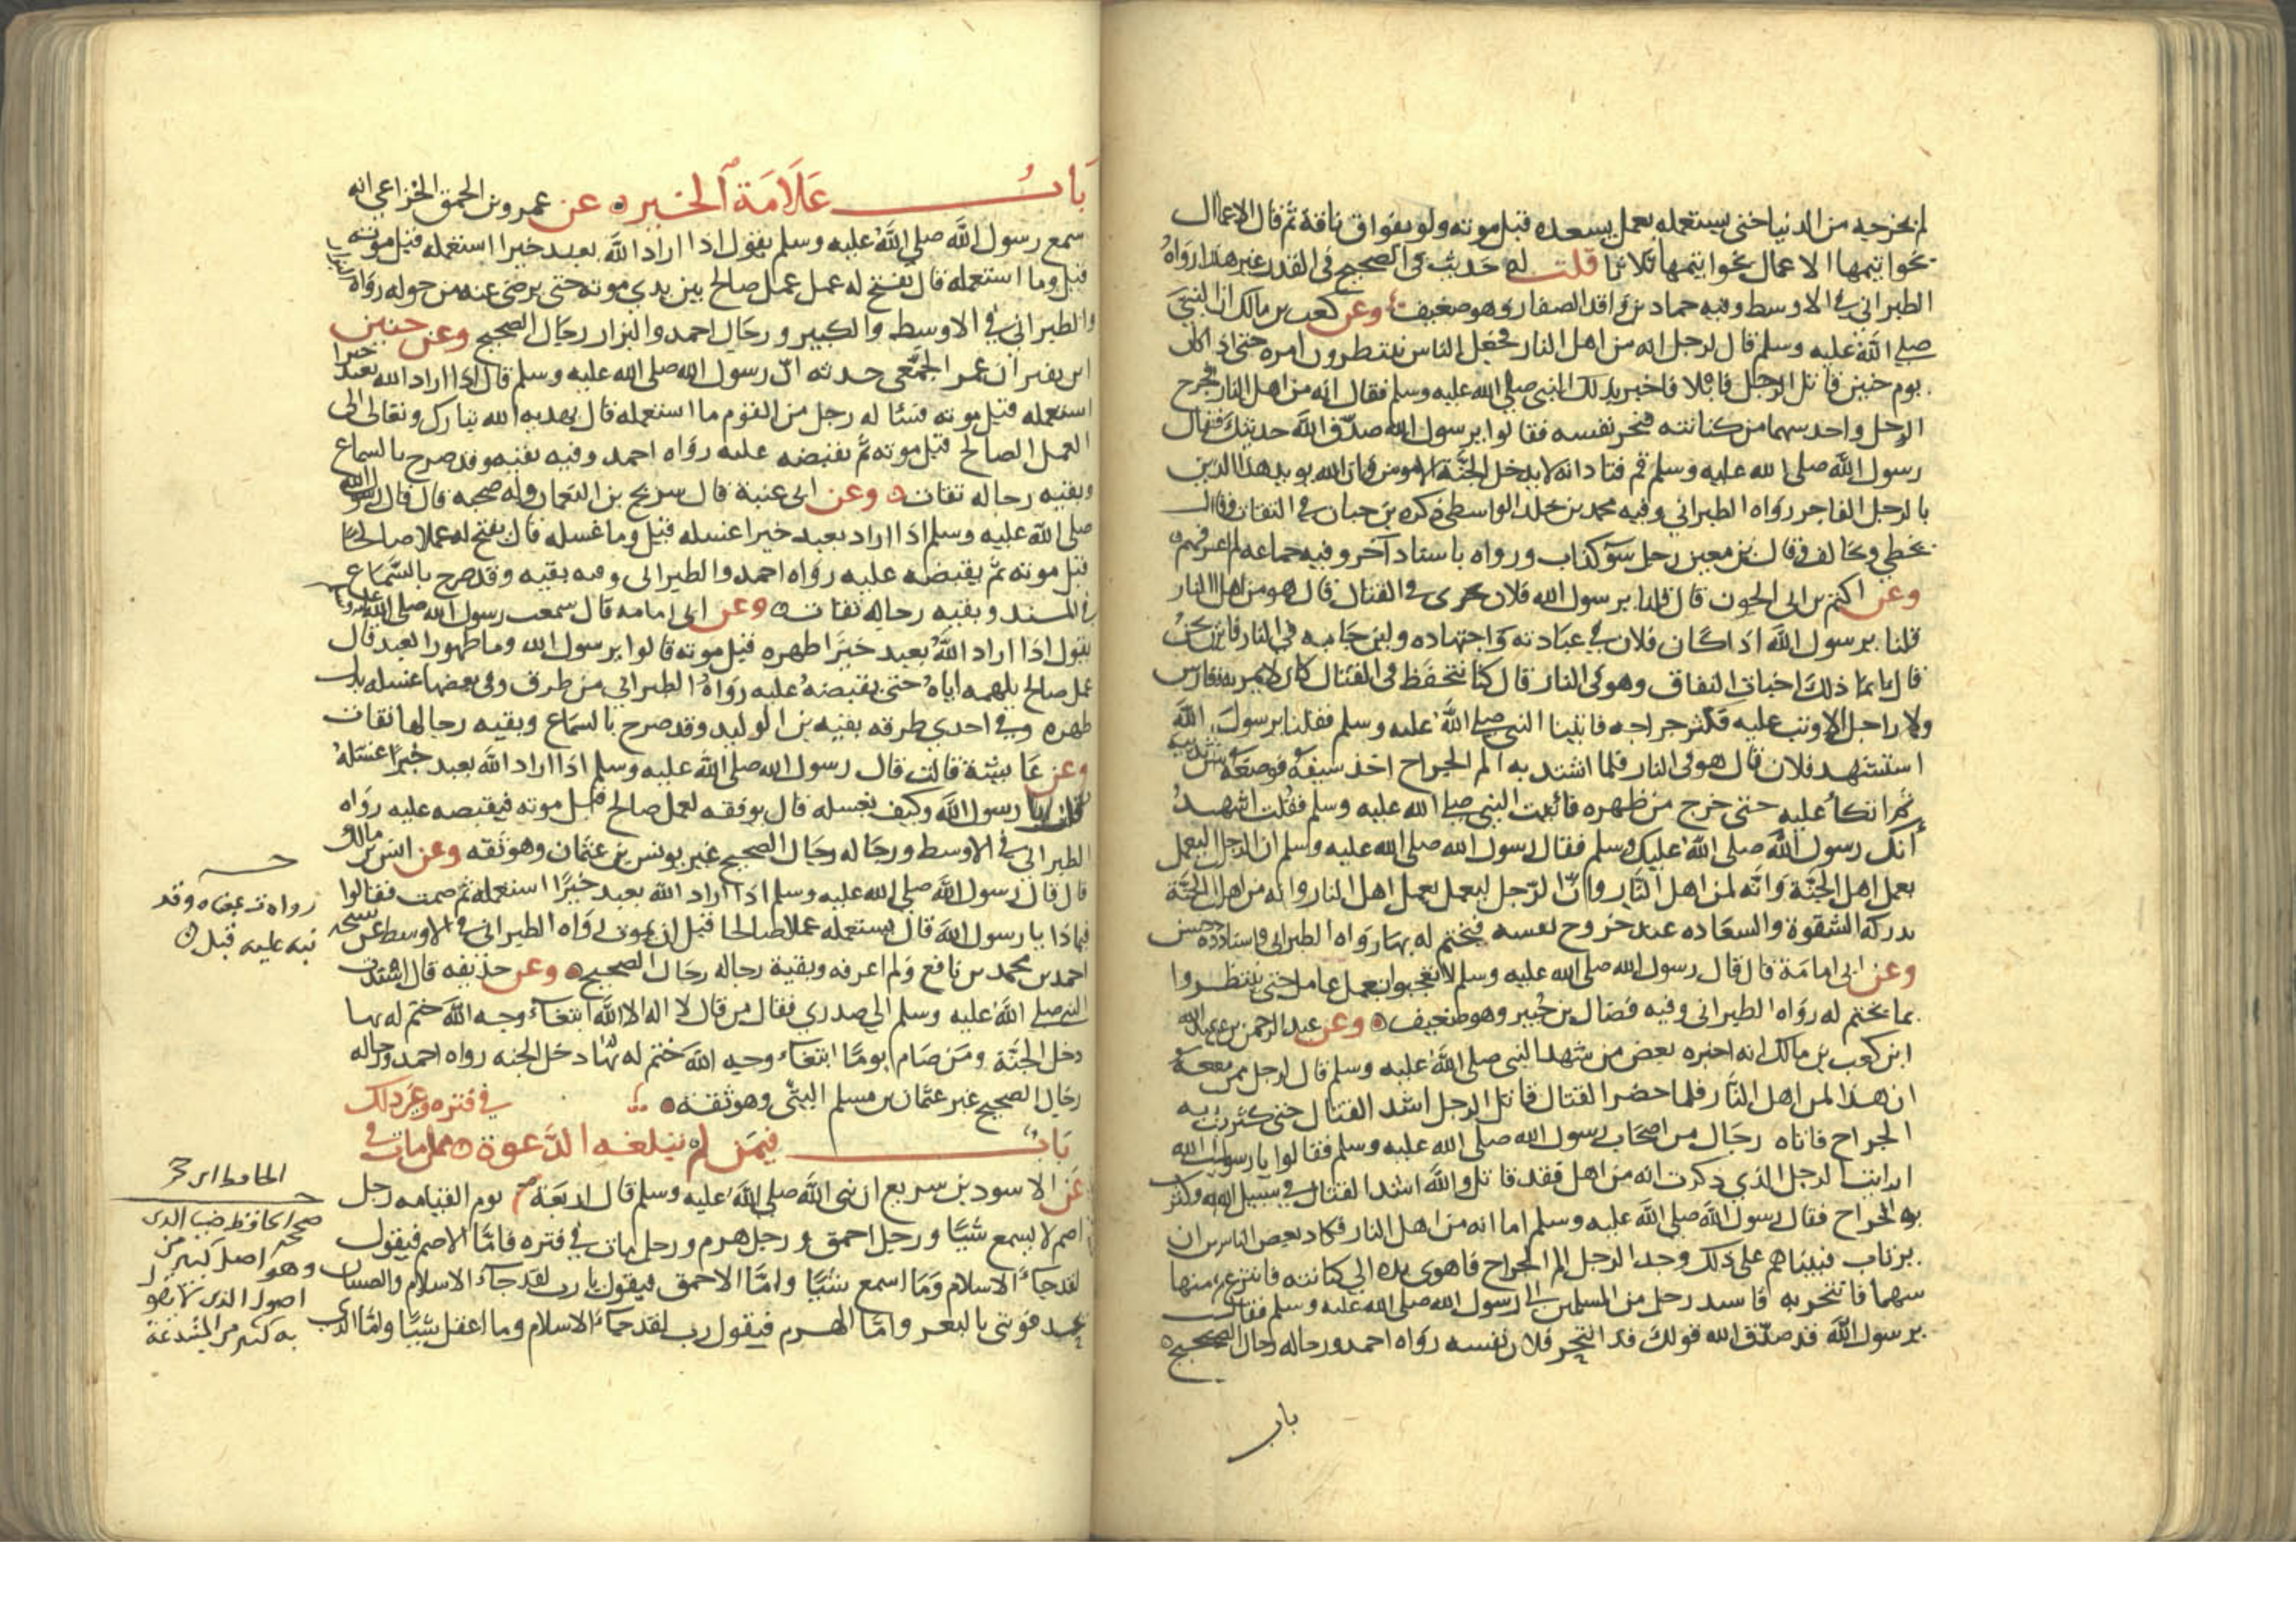 لم يخرجه من الدنيا حتى يستعمله بعمل يسعده قبل موته ولو بفواق ناقة ثم قال الاعمال
بخواتيمها الاعمال بخواتيمها ثلاثا قلت له حديث في الصحيح في القدر غير هذا رواه
الطبراني في الاوسط وفيه حماد بن واقد الصفار وهو ضعيف وعن كعب بن مالك ان النبي
صلى الله عليه وسلم قال لرجل انه من اهل النار فجعل الناس ينتظرون امره حتى اذا كان
يوم حنين قاتل الرجل قتالا فاخبر بذلك النبي صلى الله عليه وسلم فقال انه من اهل النار فخرج
الرجل واخذ سهما من كنانته فنحر نفسه فقالوا يرسول الله صدق الله حديثك فقال
رسول الله صلى الله عليه وسلم قم فناد انه لا يدخل الجنة الا مومن وان الله يويد هذا الدين
بالرجل الفاجر رواه الطبراني وفيه محمد بن خلد الواسطي ذكره بن حبان في الثقات وقال
يخطي ويخالف وقال بن معين رجل سوء كذاب ورواه باسناد آخر وفيه جماعه لم اعرفهم
وعن اكثم بن ابي الجون قال قلنا يرسول الله فلان يجرى في القتال قال هو من اهل النار
قلنا يرسول الله اذا كان فلان في عبادته واجتهاده ولين جانبه في النار فاين نحن
قال انما ذلك اخبات النفاق وهو في النار قال كنا نتحفظ في القتال كان لا يمر به فارس
ولا راجل الا وثب عليه فكثر جراحه فاتينا النبي صلى الله عليه وسلم فقلنا يرسول الله
استشهد فلان قال هو في النار فلما اشتد به الم الجراح اخذ سيفه فوضعه بين ثدييه
ثم اتكأ عليه حتى خرج من ظهره فاتيت النبي صلى الله عليه وسلم فقلت اشهد
أنك رسول الله صلى الله عليك وسلم فقال رسول الله صلى الله عليه وسلم ان الرجل ليعمل
بعمل اهل الجنة وانه لمن اهل النار وان الرجل ليعمل بعمل اهل النار وانه من اهل الجنة
تدركه الشقوة والسعاده عند خروج نفسه فيختم له بها رواه الطبراني واسناده حسن
وعن ابي امامة قال قال رسول الله صلى الله عليه وسلم لا تعجبوا بعمل عامل حتى تنتظروا
بما يختم له رواه الطبراني وفيه فضال بن جبير وهو ضعيف وعن عبد الرحمن بن عبد الله
ابن كعب بن مالك انه اخبره بعض من شهد النبي صلى الله عليه وسلم قال لرجل ممن معه
ان هذا لمن اهل النار فلما حضر القتال قاتل الرجل اشد القتال حتى كثرت به
الجراح فاتاه رجال من اصحاب رسول الله صلى الله عليه وسلم فقالوا يا رسول الله
ارايت الرجل الذي ذكرت انه من اهل فقد قاتل والله اشد القتال في سبيل الله وكثرت
به الجراح فقال رسول الله صلى الله عليه وسلم اما انه من اهل النار فكاد بعض الناس ان
يرتاب فبيناهم على ذلك وجد الرجل الم الجراح فاهوى بيده الي كنانته فانتزع منها
سهما فانتحر به فاشتد رجل من المسلمين الى رسول الله صلى الله عليه وسلم فقال
يرسول الله قد صدق الله قولك قد انتحر فلان نفسه رواه احمد ورجاله رجال الصحيح
باب
باب علامة الخير عن عمرو بن الحمق الخزاعي انه
سمع رسول الله صلى الله عليه وسلم يقول اذا اراد الله بعبد خيرا استعمله قبل موته
قيل وما استعمله قال يفتح له عمل عمل صالح بين يدي موته حتى يرضى عنه من حوله رواه
والطبراني في الاوسط والكبير ورجال احمد والبزار رجال الصحيح وعن جبير
ابن نفير ان عمر الجمعي حدثه ان رسول الله صلى الله عليه وسلم قال اذا اراد الله بعبد خيرا
استعمله قبل موته فسئا له رجل من القوم ما استعمله قال يهديه الله تبارك وتعالى الى
العمل الصالح قبل موته ثم يقبضه عليه رواه احمد وفيه بقيه وقد صرح بالسماع
وبقيه رجاله ثقات وعن ابي عنبة قال سريج بن النعمان وله صحبه قال قال رسول الله
صلى الله عليه وسلم اذا اراد بعبد خيرا عسله قيل وما عسله قال يفتح له عملا صالحا
قبل موته ثم يقبضه عليه رواه احمد والطبراني وفيه بقيه وقد صرح بالسماع
في المسند وبقيه رجاله ثقات وعن ابي امامه قال سمعت رسول الله صلى الله عليه وسلم
يقول اذا اراد الله بعبد خيرا طهره قبل موته قالوا يرسول الله وما طهور العبد قال
عمل صالح يلهمه اياه حتى يقبضه عليه رواه الطبراني من طرق وفي بعضها عسله بدل
طهره وفي احدي طرقه بقيه بن الوليد وقد صرح بالسماع وبقيه رجالها ثقات
وعن عايشة قالت قال رسول الله صلى الله عليه وسلم اذا اراد الله بعبد خيرا عسله
قيل يا رسول الله وكيف يعسله قال يوفقه لعمل صالح قبل موته فيقبضه عليه رواه
الطبراني في الاوسط ورجاله رجال الصحيح غير يونس بن عثمان وهو ثقه وعن انس بن مالك
قال قال رسول الله صلى الله عليه وسلم اذا اراد الله بعبد خيرا استعمله ثم صمت فقالوا
فيما ذا يا رسول الله قال يستعمله عملا صالحا قبل ان يموت رواه الطبراني في الاوسط عن شيخه
احمد بن محمد بن نافع ولم اعرفه وبقية رجاله رجال الصحيح وعن حذيفه قال اسندت
النبي صلى الله عليه وسلم الي صدري فقال من قال لا اله الا الله ابتغاء وجه الله ختم له بها
دخل الجنة ومن صام يوما ابتغاء وجه الله ختم له بها دخل الجنه رواه احمد ورجاله
رجال الصحيح غير عثمان بن مسلم البتي وهو ثقة
باب فيمن لم تبلغه الدعوة ممن مات في
في فتره وغير ذلك
عن الاسود بن سريع ان نبي الله صلى الله عليه وسلم قال اربعة يوم القيامه رجل
اصم لا يسمع شيئا ورجل احمق ورجل هرم ورجل مات في فتره فاما الاصم فيقول
لقد جاء الاسلام وما اسمع شيئا واما الاحمق فيقول يا رب لقد جاء الاسلام والصبيان
يحذفوني بالبعر واما الهرم فيقول رب لقد جاء الاسلام وما اعقل شيئا واما الذي
وقد
نبه عليه قبل
الحافظ ابن حجر
صححه الحافظ
وهو اصل كبير من
اصول الذي
به كثير من المبتدعة